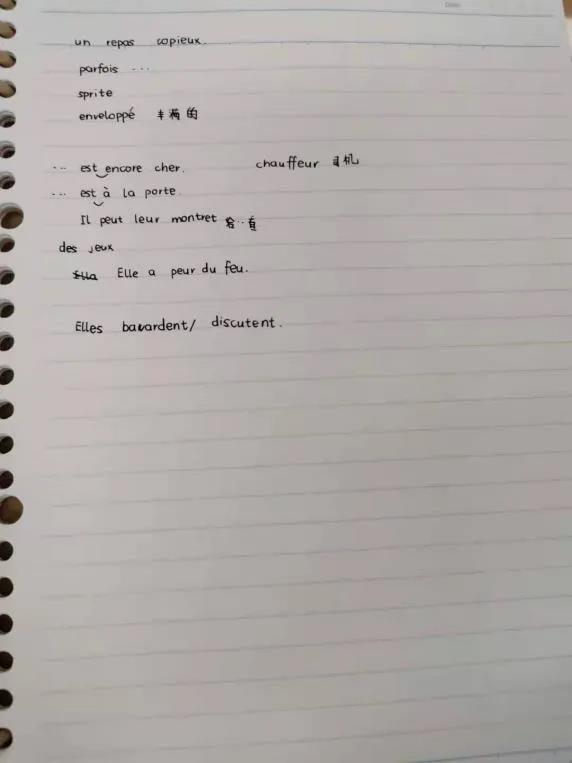 un repas copieux.
parfois ...
sprite
enveloppé 丰满的
... est encore cher. chauffeur 司机
... est à la porte.
Il peut leur montret 给..看
des jeux
Elle a peur du feu.
Elles bavardent/ discutent.